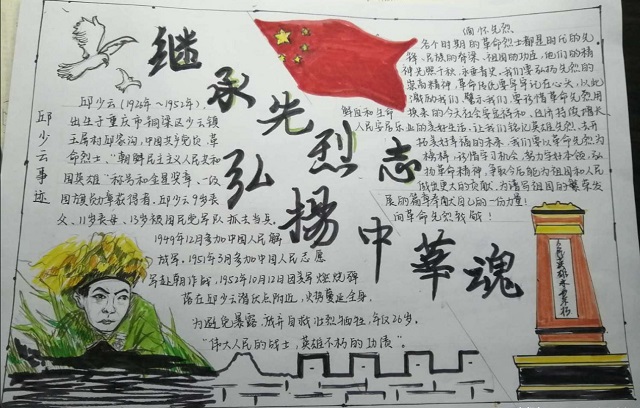 继承先烈志
弘揚中華魂
邱少云事迹
邱少云(1926年~1952年),
出生于重庆市铜梁区少云镇
玉屏村邱家沟,中国共产党员,革
命烈士、"朝鲜民主主义人民共和
国英雄"称号和金星奖章、一级
国旗勋章获得者。邱少云9岁丧
父、11岁丧母、13岁被国民党军队抓去当兵。
1949年12月参加中国人民解
放军,1951年3月参加中国人民志愿
军赴朝作战,1952年10月12日因美军燃烧弹
落在邱少云潜伏点附近,火势蔓延全身,
为避免暴露,放弃自救壮烈牺牲,年仅26岁。
"伟大人民的战士,英雄不朽的功勋"
缅怀先烈
各个时期的革命烈士都是时代的先
锋、民族的脊梁、祖国的功臣,他们的精
神光照千秋,永垂青史。我们要弘扬先烈的
崇高精神,革命传统要牢牢记在心头,以此
激励我们、警示我们。要珍惜革命先烈用
鲜血和生命换来的今天社会安定得和
人民安居乐业的美好生活,让我们铭记英雄先烈,去开
拓美好幸福的未来,我们要以革命先烈为
榜样,珍惜学习机会,努力学好本领,弘
扬革命精神,争取今后能为祖国和人民
做出更大的贡献,为谱写祖国的繁荣发
展的篇章奉献自己的一份力量!
向革命先烈致敬!
人民英雄永垂不朽